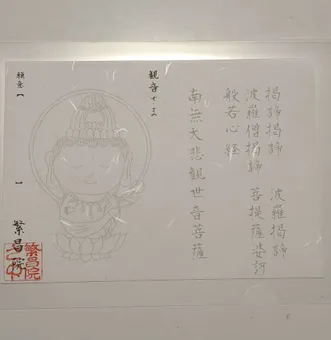 揭諦揭諦　波羅揭諦
波羅僧揭諦　菩提薩婆訶
般若心経
南無大悲觀世音菩薩
願意【　】
繁昌院